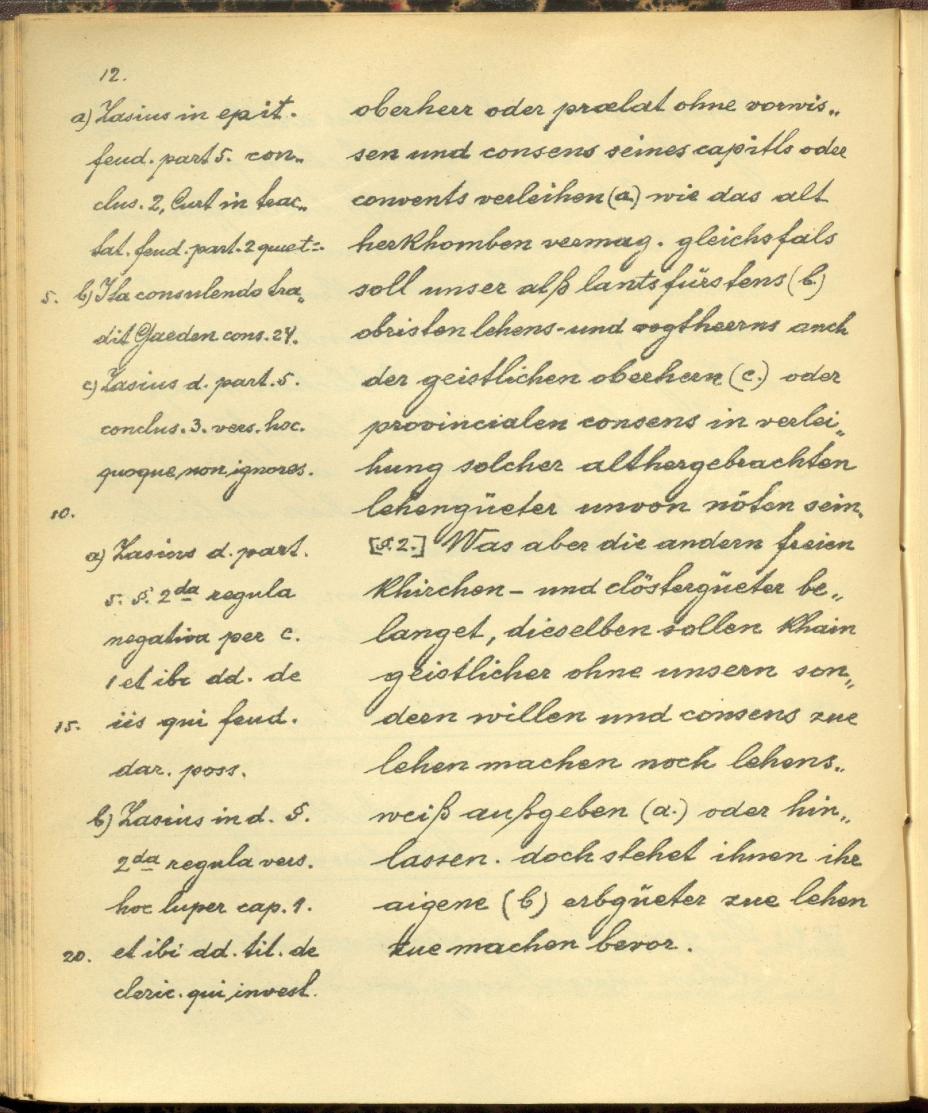 12.
a) Zasius in epit.
feud. part 5. con„
clus. 2, Curt in trac„
tat. feud. part. 2 quaet-.
5. b) Ita consulendo tra„
dit Gaeden cons. 24.
c) Zasius d. part. 5.
conclus. 3. vers. hoc.
quoque non ignores.
10.
a) Zasius d. part.
5. §. 2da regula
negativa per c.
1 et ibi dd. de
15. iis qui feud.
dar. poss.
b) Zasius in d. §.
2da regula vers.
hoc luper cap. 1.
20. et ibi dd. tit. de
cleric. qui invest.
oberherr oder prælat ohne vorwis„
sen und consens seines capitls oder
convents verleihen (a) wie das alt
herkhomben vermag. gleichsfals
soll unser alß lantsfürstens (b)
obristen lehens- und vogtheerns auch
der geistlichen oberhern (c.) oder
provincialen consens in verlei„
hung solcher althergebrachten
lehengüeter unvon nöten sein.
[§. 2.] Was aber die andern freien
khirchen- und clöstergüeter be„
langet, dieselben sollen khain
geistlicher ohne unsern son„
dern willen und consens zue
lehen machen noch lehens„
weiß außgeben (a.) oder hin„
lassen. doch stehet ihnen ihr
aigene (b) erbgüeter zue lehen
zue machen bevor.